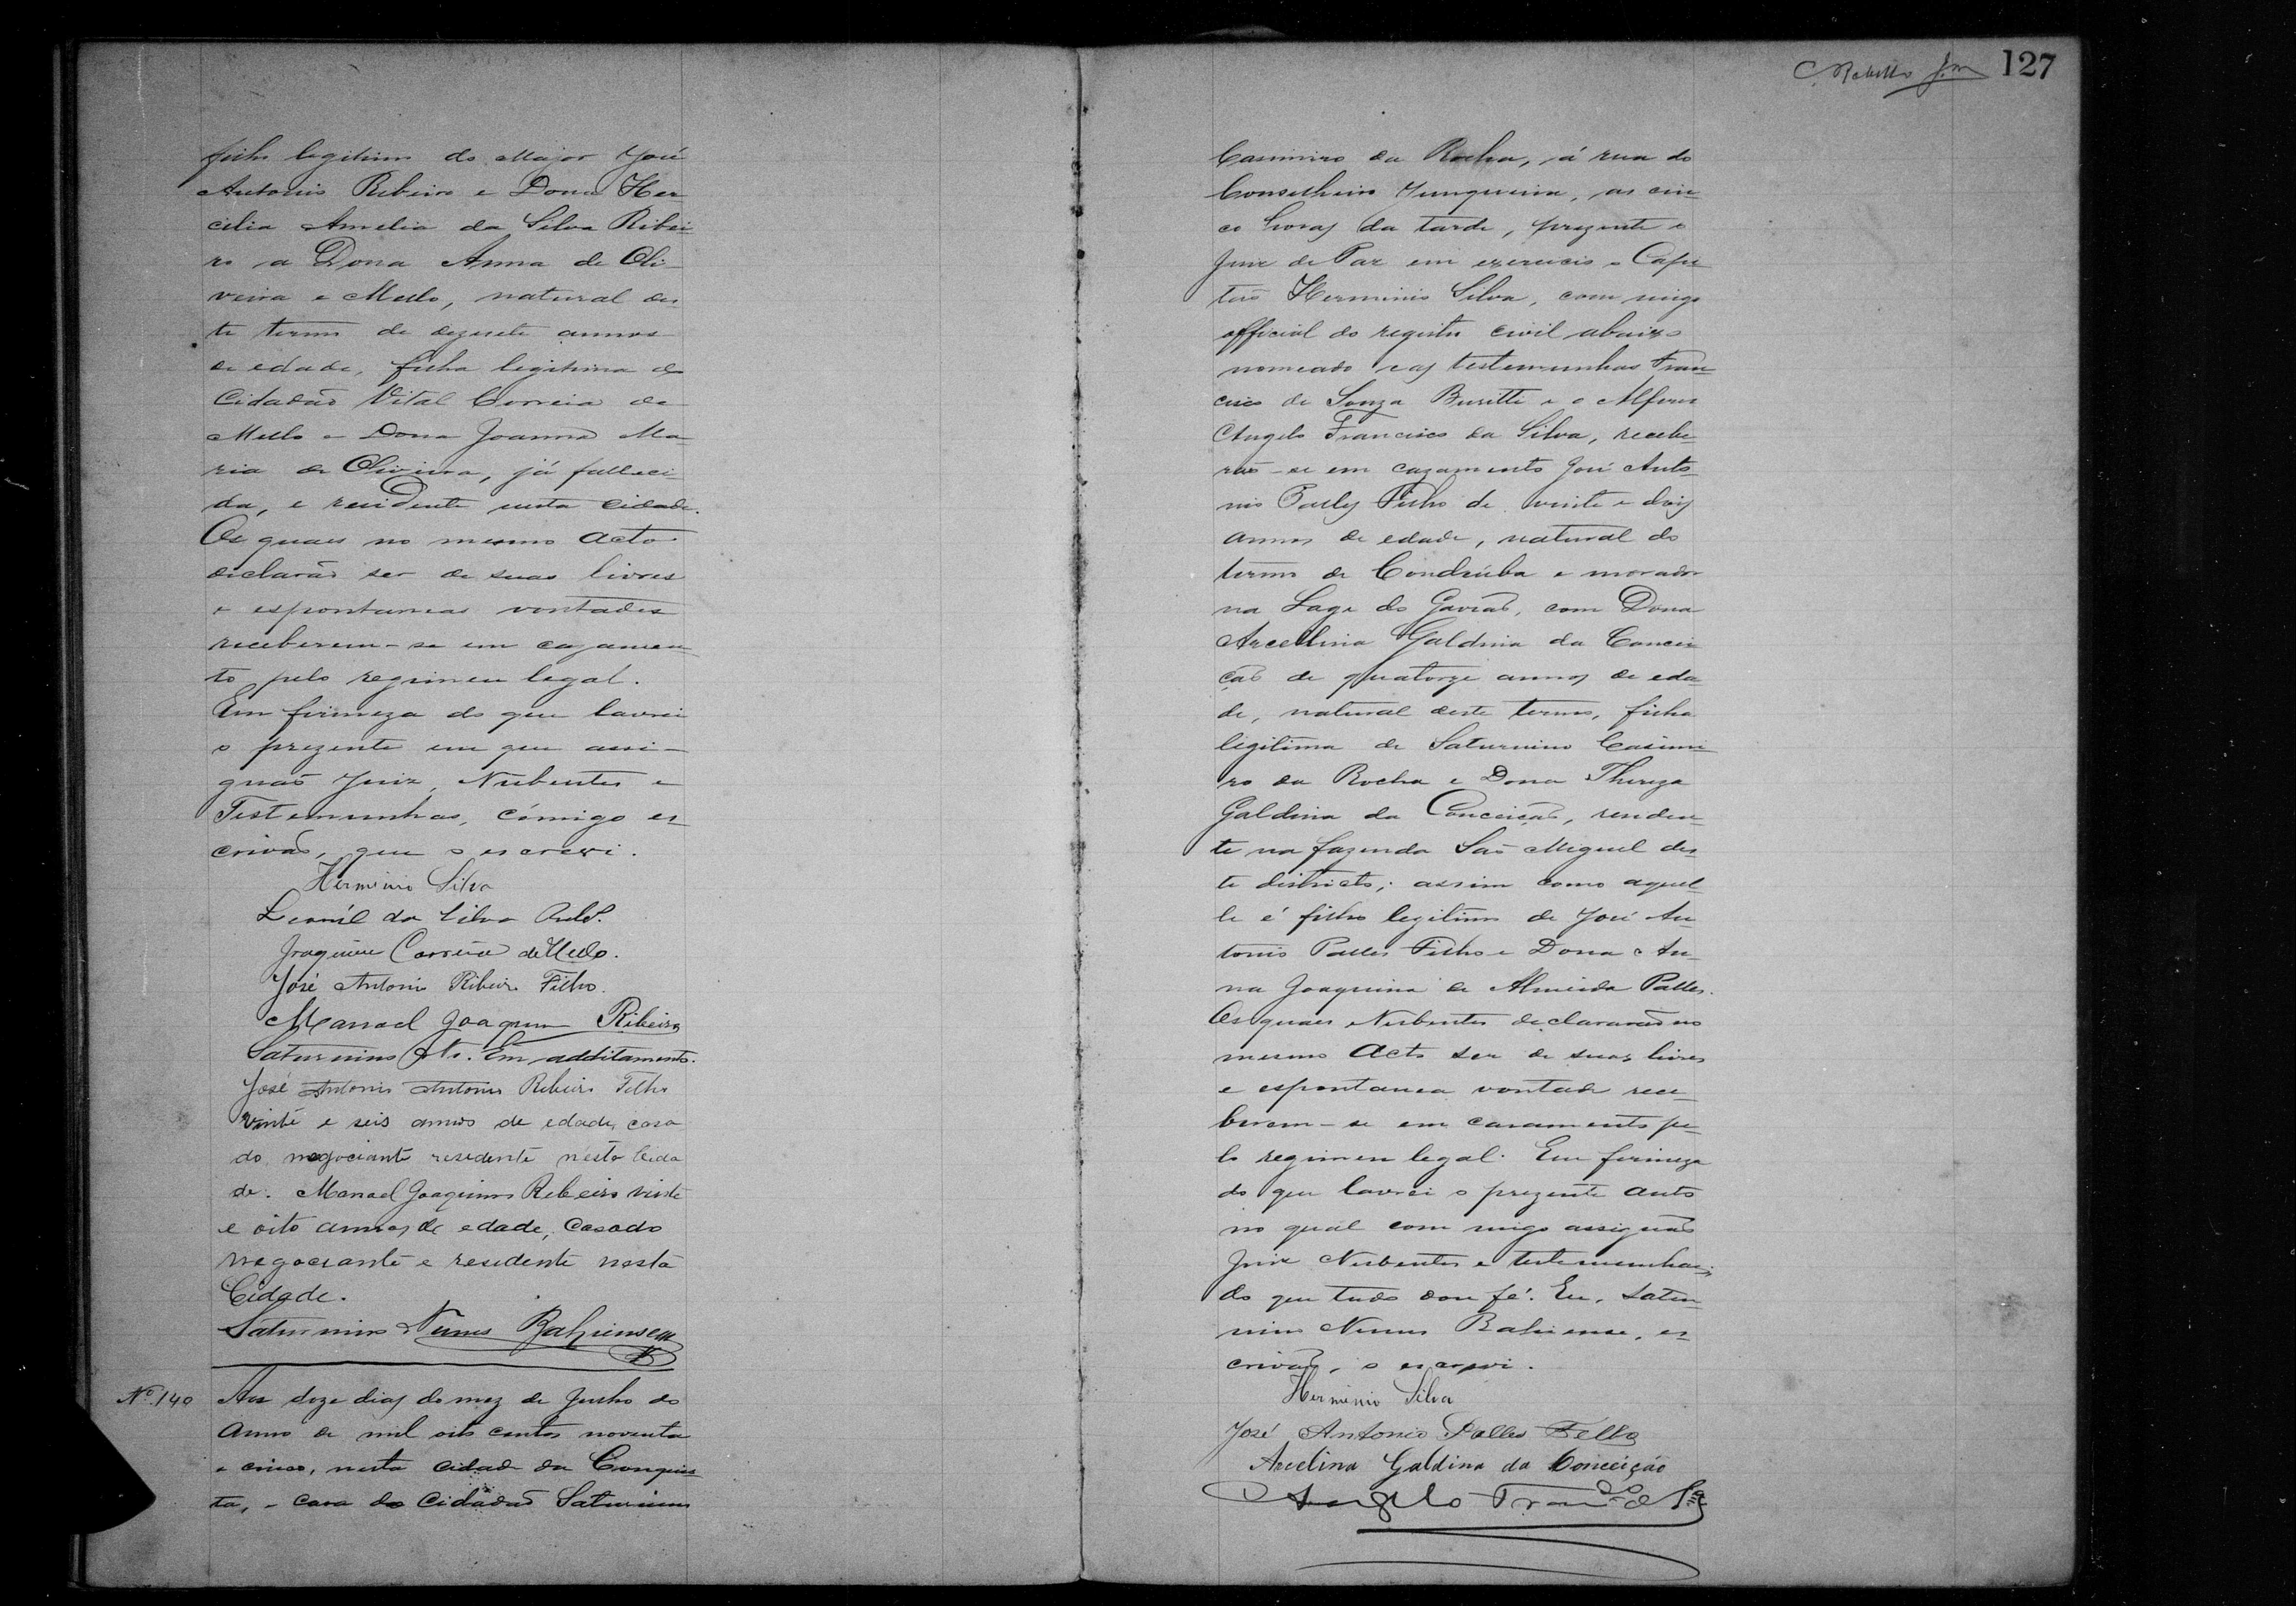 filho legitimo do Major José
Antonio Ribeiro e Dona Her
cilia Amelia da Silva Ribei-
ro a Dona Anna de Oli-
veira e Mello, natural des
te termo de dezesete annos
de edade, filha legitima do
Cidadão Vital Correia de
Mello e Dona Joanna Ma-
ria de Oliveira, já falleci-
da, e residente nesta cidade.
Os quaes no mesmo acto
declarão ser de suas livres
e espontaneas vontades
receberem-se em cazamen-
to pelo regimen legal.
Em firmeza do que lavrei
o prezente em que assi-
gnão Juiz, Nubentes e
Testemunhas, cómigo es
crivão, que o escrevi.
Herminio Silva
da Silva
Correia de Mello.
José Antonio Ribeiro Filho.
Manoel Joaquim Ribeiro
Saturnino Ns. Em additamento.
José Antonio Antonio Ribeiro Filho
vinte e seis annos de edade, casa
do negociante residente nesta Cida
de. Manoel Joaquim Ribeiro vinte
e oito annos de edade, Casado
negociante e residente nesta
Cidade.
Saturnino Nunes Bahiense
Nº 140 Aos doze dias do mez de Junho do
anno de mil oito centos noventa
e cinco, nesta cidade da Conquis-
ta, e casa do Cidadão Saturnino
127
Casimiro da Rocha, á rua do
Conselheiro Junqueira, as cin-
co horas da tarde, prezente o
Juiz de Paz em exercicio o Capi
tão Herminio Silva, com migo
official do registro civil abaixo
nomeado e as testemunhas Fran-
cisco de Souza Buritti e o Alferes
Angelo Francisco da Silva, recebe-
rão-se em cazamento José Anto-
nio Palles Filho de vinte e dois
annos de edade, natural do
termo de Condeúba e morador
na Lage do Gavião, com Dona
Arcellina Galdina da Concei-
ção de quatorze annos de eda-
de, natural deste termo, filha
legitima de Saturnino Casimi
ro da Rocha e Dona Thereza
Galdina da Conceição, residen-
te na fazenda São Miguel des-
te districto; assim como aquel-
le é filho legitimo de José An-
tonio Palles Filho e Dona An-
na Joaquina de Almeida Palles.
Os quaes Nubentes declararão no
mesmo Acto ser de suas livres
e espontanea vontade rece-
berem-se em casamento pe-
lo regimen legal. Em firmeza
do que lavrei o prezente auto
no qual com migo assignão
Juiz Nubentes e testemunhas;
do que tudo dou fé. Eu, Satur-
nino Nunes Bahiense, es
crivão, o escrevi.
Herminio Silva
José Antonio Palles Fello
Arcelina Galdina da Conceição
Angelo Franco da Sa